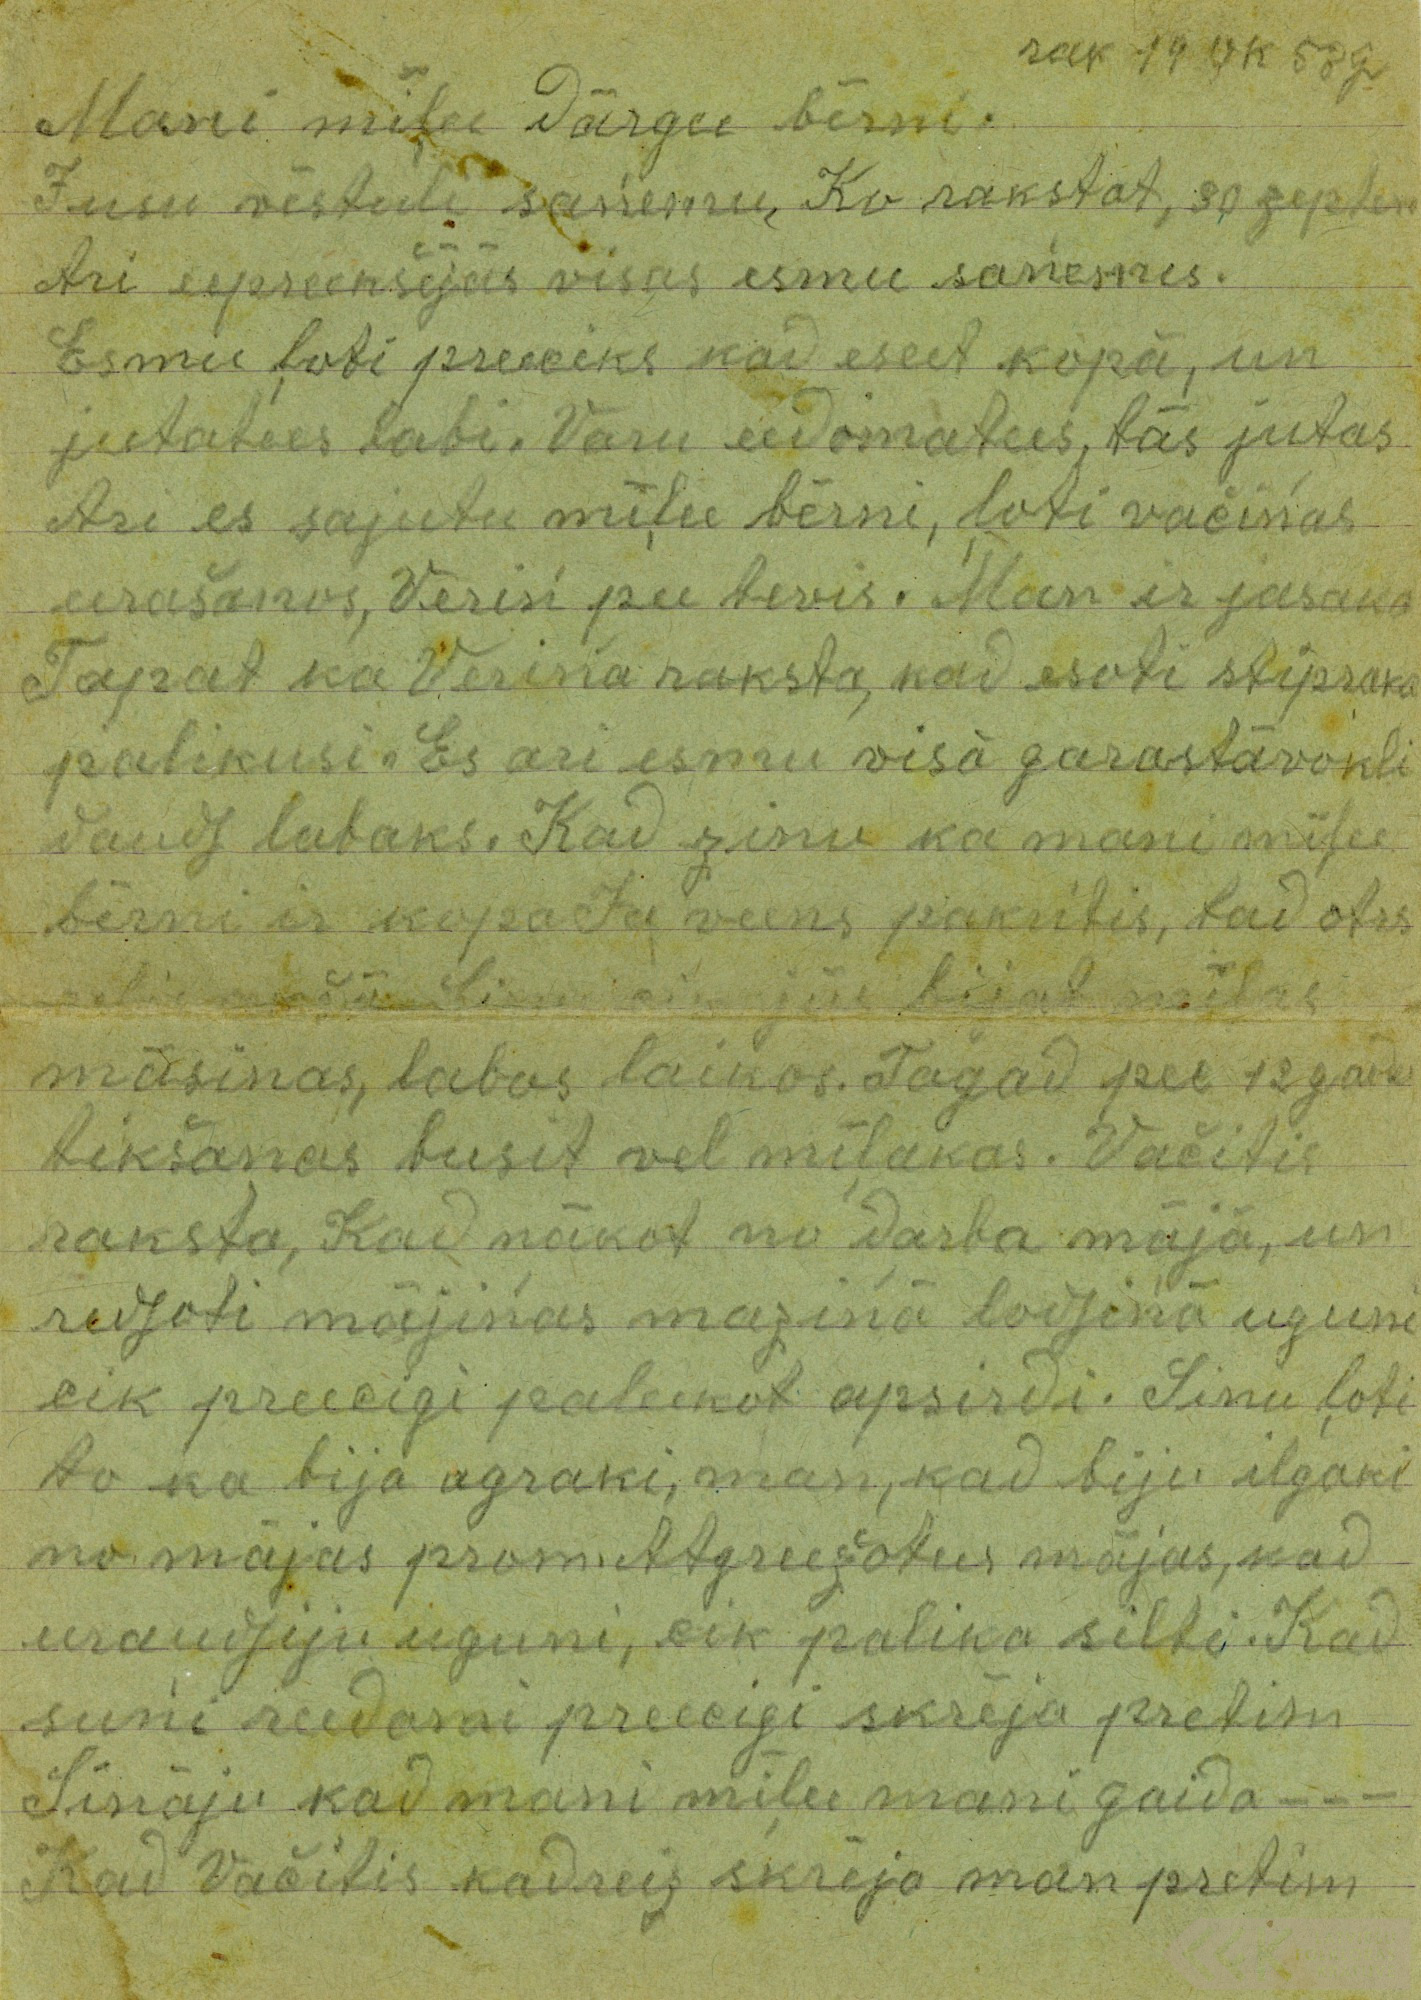 rak 19 ok 53g
Mani miļee Därgee bērni.
Jusu vēstuli sańemu, Ko rakstot, 30 zeptem
Ari eepreekšējās visas esmu sańemis.
Esmu ļoti preeciks kad eseet kopā, un
jutatees labi. Varu eedomatees, tās jutas
Ari es sajutu mīļee bērni, ļoti vačińas
urašanos, Verin pee tevis. Man ir jasaka
Tapat ka Verina raksta, kad esoti stipraka
palikusi. Es ari esmu visā garastāvokli
daudz labaks. Kad zinu ka mani miļee
bērni ir kopa Ja veens pakritis, tad otrs
jus bijat milas
māsinas, labos laikos. Tagad pee 12 gadu
tikšanas busit vel mīļakas. Vačitis
raksta, Kad nākot no darba mājā, un
redzoti mājińas mazińā lodzińā uguni
cik preecigi paleekot apsirdi. Sinu ļoti
to ka bija agraki, man, kad biju ilgaki
no mājas prom. Atgreežotees mājas, kad
uraudziju uguni, cik palika silti. Kad
suńi reedami preecigi skrēja pretim
Sināju kad mani mīļee mani gaida ---
Kad Vačitis kadreiz skrēja man pretim